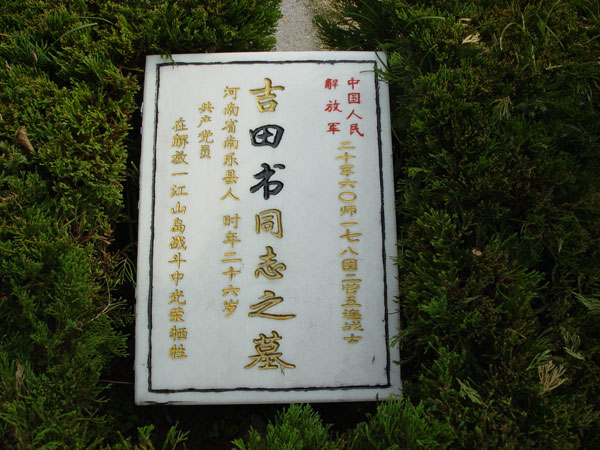 中国人民
解放军
二十军六〇师一七八团二营五连战士
吉田书同志之墓
河南省南乐县人 时年二十六岁
共产党员
在解放一江山岛战斗中光荣牺牲